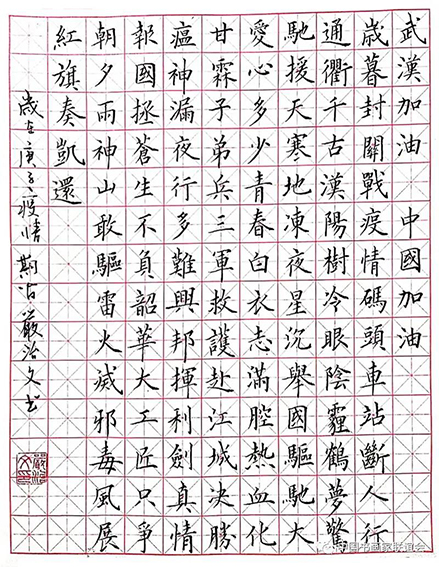 武漢加油 中國加油
歲暮封關戰疫情碼頭車站斷人行
通衢千古漢陽樹冷眼陰霾鶴夢驚
馳援天寒地凍夜星沉舉國驅馳大
愛心多少青春白衣志滿腔熱血化
甘霖子弟兵三軍救護赴江城決勝
瘟神漏夜行多難興邦揮利劍真情
報國拯蒼生不負韶華大工匠只爭
朝夕雨神山敢驅雷火滅邪毒風展
紅旗奏凱還
歲在庚子疫情期嚴治文書
中国书画家联谊会